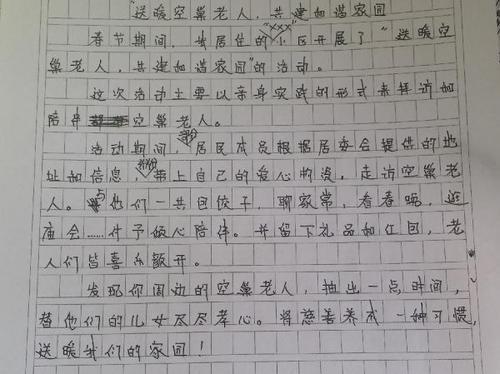 "送暖空巢老人,共建和谐家园
春节期间,我居住的"xxx"小区开展了"送暖空
巢老人,共建和谐家园"的活动。
这次活动主要以亲身实践的形式来拜访和
陪伴空巢老人。
活动期间,部分居民成员根据居委会提供的地
址和信息,带上自己的爱心物资,走访空巢老
人。与他们一共包饺子,聊家常,看春晚,逛
庙会……付予倾心陪伴。并留下礼品和红包,老
人们皆喜乐颜开。
发现你周边的空巢老人,抽出一点时间,
替他们的儿女尽尽孝心。将慈善养成一种习惯,
送暖我们的家园!